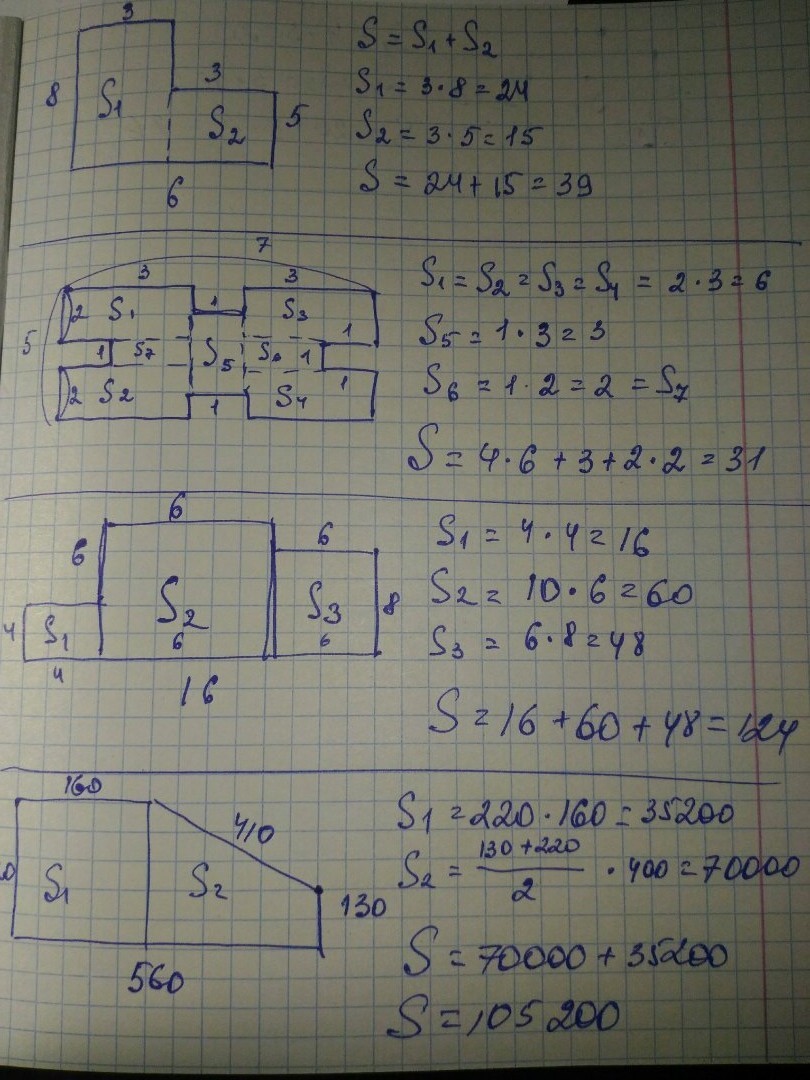 3
8
S₁
3
S₂
5
6
S = S₁ + S₂
S₁ = 3·8 = 24
S₂ = 3·5 = 15
S = 24 + 15 = 39
7
3
1
3
5
2 S₁
S₃
1
1 S₇
S₅
S₆ 1
2 S₂
1
S₄
1
S₁ = S₂ = S₃ = S₄ = 2·3 = 6
S₅ = 1·3 = 3
S₆ = 1·2 = 2 = S₇
S = 4·6 + 3 + 2·2 = 31
6
6
6
4 S₁
S₂
S₃
8
4
6
6
16
S₁ = 4·4 = 16
S₂ = 10·6 = 60
S₃ = 6·8 = 48
S = 16 + 60 + 48 = 124
160
410
S₁
S₂
130
560
S₁ = 220·160 = 35200
S₂ = (130 + 220)/2 · 400 = 70000
S = 70000 + 35200
S = 105 200